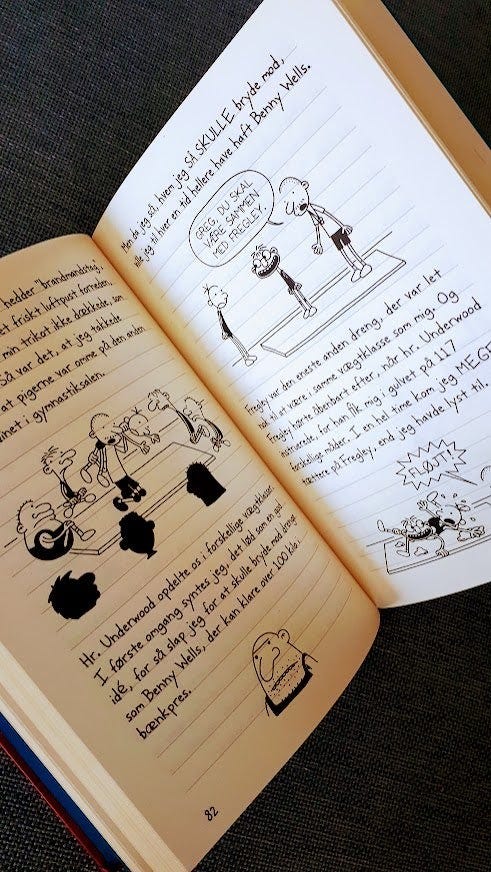 hedder "brandmandstag,"
et friskt luftpust forneden,
min trikot ikke dækkede, som
Så var det, at jeg takkede
at pigerne var omme på den anden
i gymnastiksalen.
Hr. Underwood opdelte os i forskellige vægtklasser.
I første omgang syntes jeg, det lød som en god
idé, for så slap jeg for at skulle bryde mod drenge
som Benny Wells, der kan klare over 100 kilo i
bænkpres.
82
Men da jeg så, hvem jeg så SKULLE bryde mod,
ville jeg til hver en tid hellere have haft Benny Wells.
GREG, DU SKAL
VÆRE SAMMEN
MED FREGLEY.
Fregley var den eneste anden dreng, der var let
nok til at være i samme vægtklasse som mig. Og
Fregley hørte åbenbart efter, når hr. Underwood
instruerede, for han fik mig i gulvet på 117
forskellige måder. I en hel time kom jeg MEGET
tættere på Fregley, end jeg havde lyst til.
FLØJT!